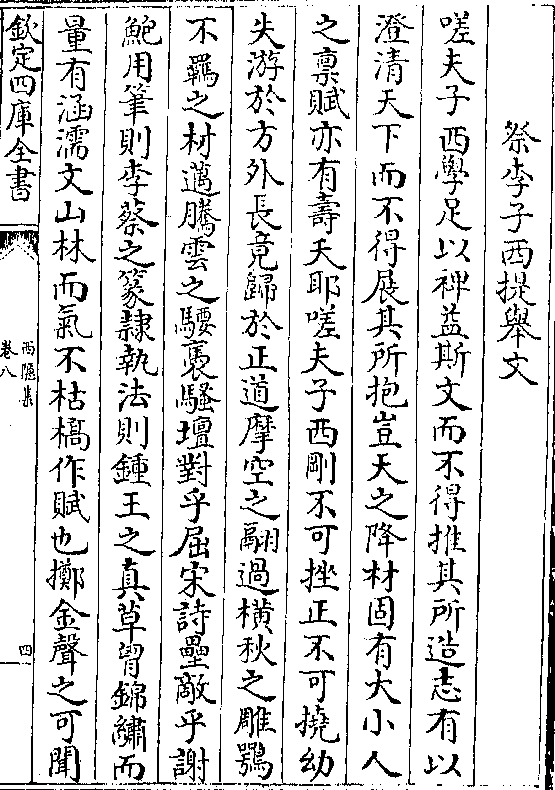 祭李子西提舉文
嗟夫子西學足以裨益斯文而不得推其所造志有以
澄清天下而不得展其所抱豈天之降材固有大小人
之禀賦亦有壽夭耶嗟夫子西剛不可挫正不可撓幼
失游於方外長竟歸於正道摩空之翮過横秋之雕鶚
不羈之材邁騰雲之騕褭騷壇對乎屈宋詩壘敵乎謝
鮑用筆則李蔡之篆隷執法則鍾王之真草胷錦繡而
量有涵濡文山林而氣不枯槁作賦也擲金聲之可聞
欽定四庫全書
西隠集
卷八
四